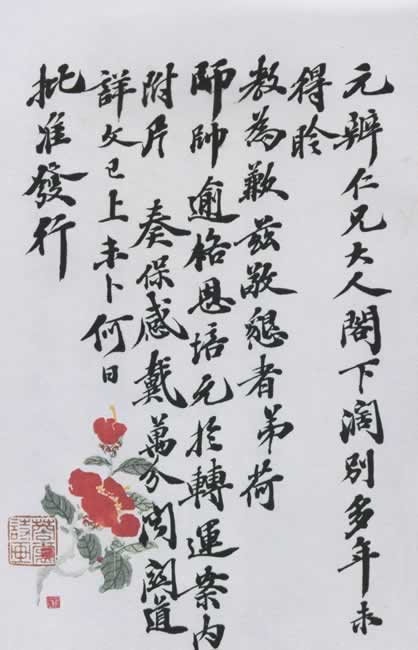 元辦仁兄大人閣下濶別多年未
得聆
教為歉茲敬懇者弟荷
師帥逾格恩培允於轉運案内
附片 奏保感戴萬分聞關道
詳文已上未卜何日
批准發行